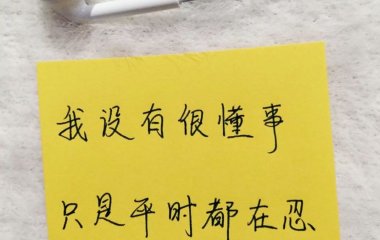 我没有很懂事
只是平时都在忍